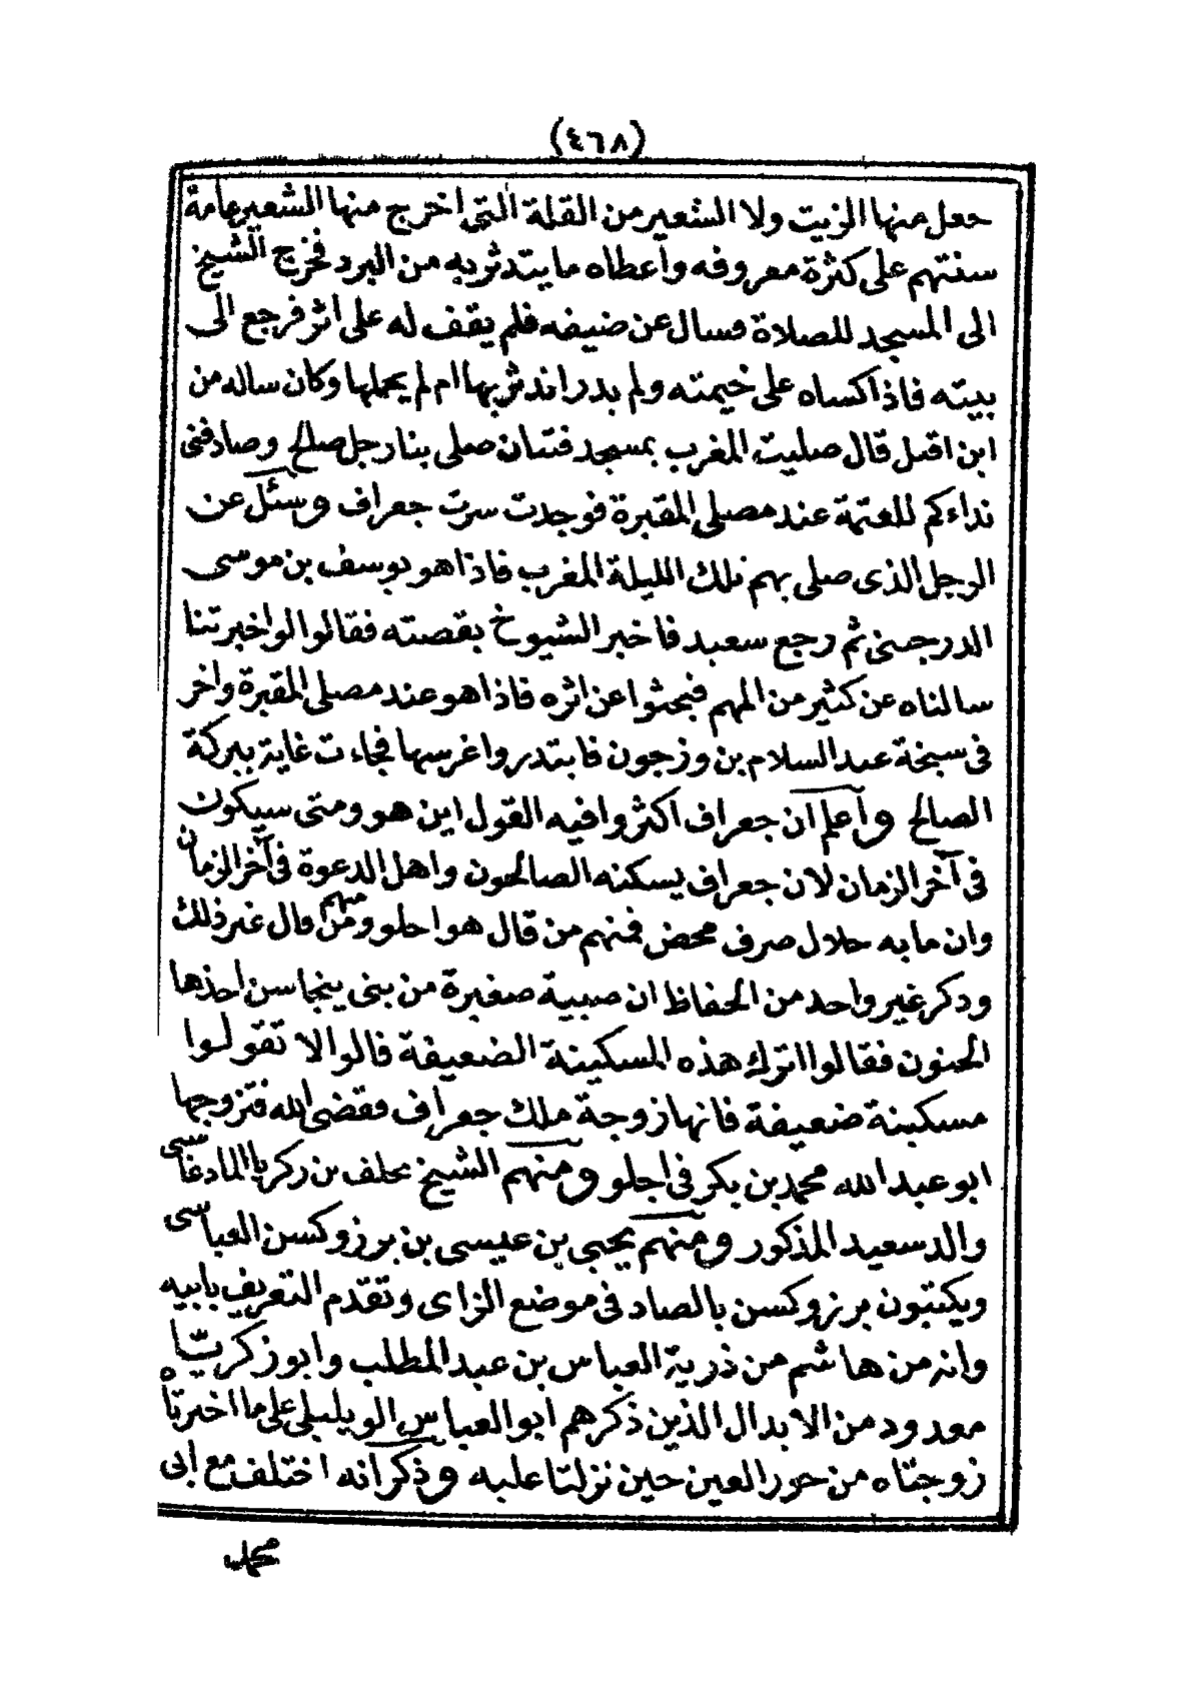 (٤٦٨)
جعل منها الزيت ولا الشعير من القلة التي اخرج منها الشعير عامة
سنتهم على كثرة معروفه وأعطاه ما يتدثر به من البرد فخرج الشيخ
الى المسجد للصلاة وسال عن ضيفه فلم يقف له على اثر فرجع الى
بيته فاذا كساه على خيمته ولم يدر اندثر بها ام لم يحملها وكان ساله من
اين اقبل قال صليت المغرب بمسجد فتسان صلى بنا رجل صالح وصادفني
نداءكم للعتمة عند مصلى المقبرة فوجدت سرت جعراف وسئل عن
الرجل الذى صلى بهم تلك الليلة المغرب فاذا هو يوسف بن موسى
الدرجينى ثم رجع سعيد فاخبر الشيوخ بقصته فقالوا لو اخبرتنا
سالناه عن كثير من المهم فبحثوا عن اثره فاذا هو عند مصلى المقبرة واخر
فى سبخة عبد السلام بن وزجون فابتدروا غرسها فجاءت غاية ببركة
الصالح وأعلم ان جعراف اكثروا فيه القول اين هو ومتى سيكون
فى آخر الزمان لان جعراف يسكنه الصالحون واهل الدعوة فى آخر الزمان
وان ما به حلال صرف محض فمنهم من قال هو احلو ومنهم من قال غير ذلك
وذكر غير واحد من الحفاظ ان صبية صغيرة من بنى ينجاسن اخذها
الجنون فقالوا اترك هذه المسكينة الضعيفة قالوا لا تقولوا
مسكينة ضعيفة فانها زوجة ملك جعراف فقضى الله فتزوجها
ابو عبد الله محمد بن بكر فى اجلو ومنهم الشيخ يخلف بن زكريا المادغاسى
والد سعيد المذكور ومنهم يحيى بن عيسى بن برزوكسن العباسى
ويكتبون برزوكسن بالصاد فى موضع الزاى وتقدم التعريف بابيه
وانه من هاشم من ذرية العباس بن عبد المطلب وابو زكريّا
معدود من الابدال الذين ذكرهم ابو العباس الويليلى على ما اخبرتاه
زوجتاه من حور العين حين نزلتا عليه وذكر انه اختلف مع ابى
محمد